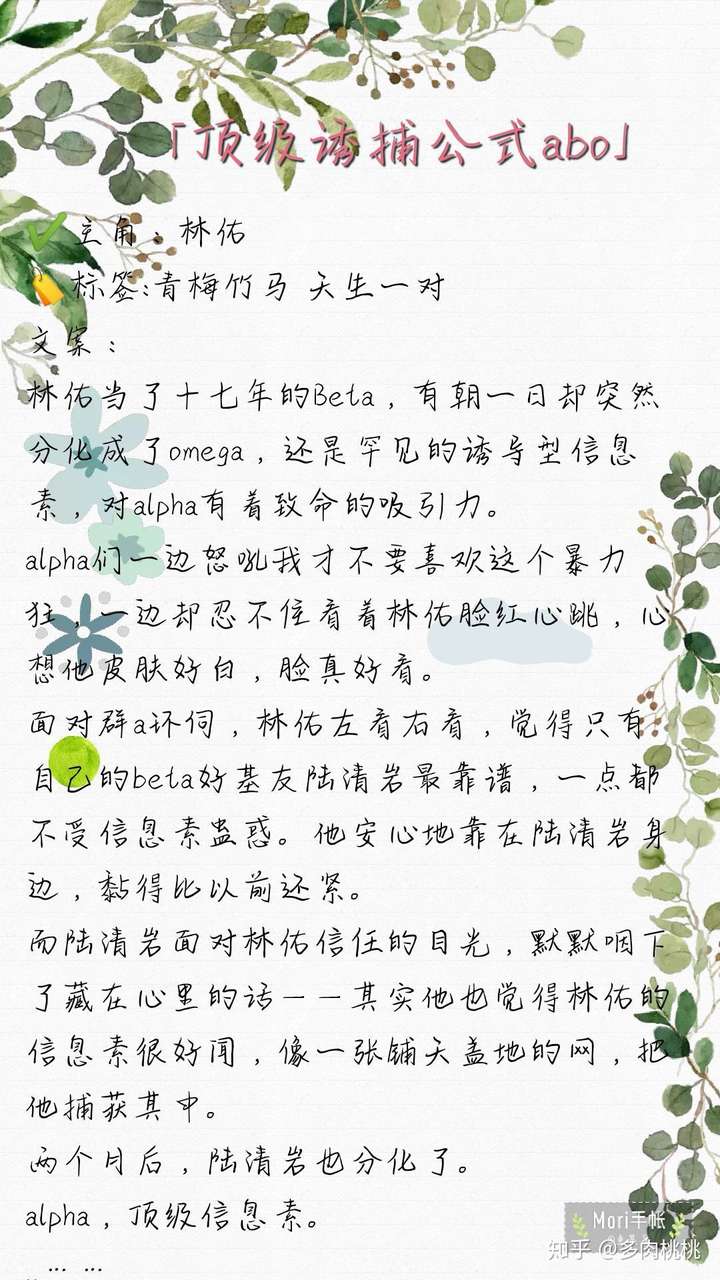 「顶级诱捕公式abo」
主角：林佑
标签:青梅竹马 天生一对
文案：
林佑当了十七年的Beta，有朝一日却突然
分化成了omega，还是罕见的诱导型信息
素，对alpha有着致命的吸引力。
alpha们一边怒吼我才不要喜欢这个暴力
狂，一边却忍不住看着林佑脸红心跳，心
想他皮肤好白，脸真好看。
面对群a环伺，林佑左看右看，觉得只有
自己的beta好基友陆清岩最靠谱，一点都
不受信息素蛊惑。他安心地靠在陆清岩身
边，黏得比以前还紧。
而陆清岩面对林佑信任的目光，默默咽下
了藏在心里的话——其实他也觉得林佑的
信息素很好闻，像一张铺天盖地的网，把
他捕获其中。
两个月后，陆清岩也分化了。
alpha，顶级信息素。
... ...
Mori手帐
知乎 @多肉桃桃